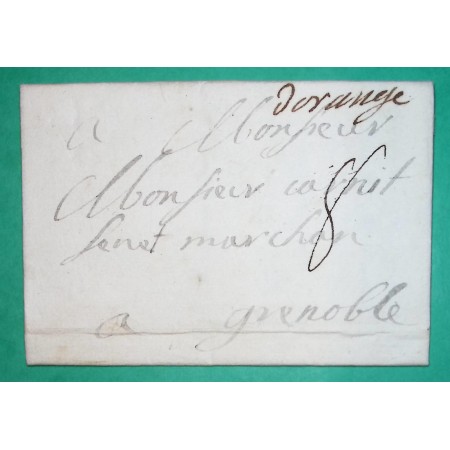 dorange
a Monsieur
Monsieur
8
senet marchan
a grenoble